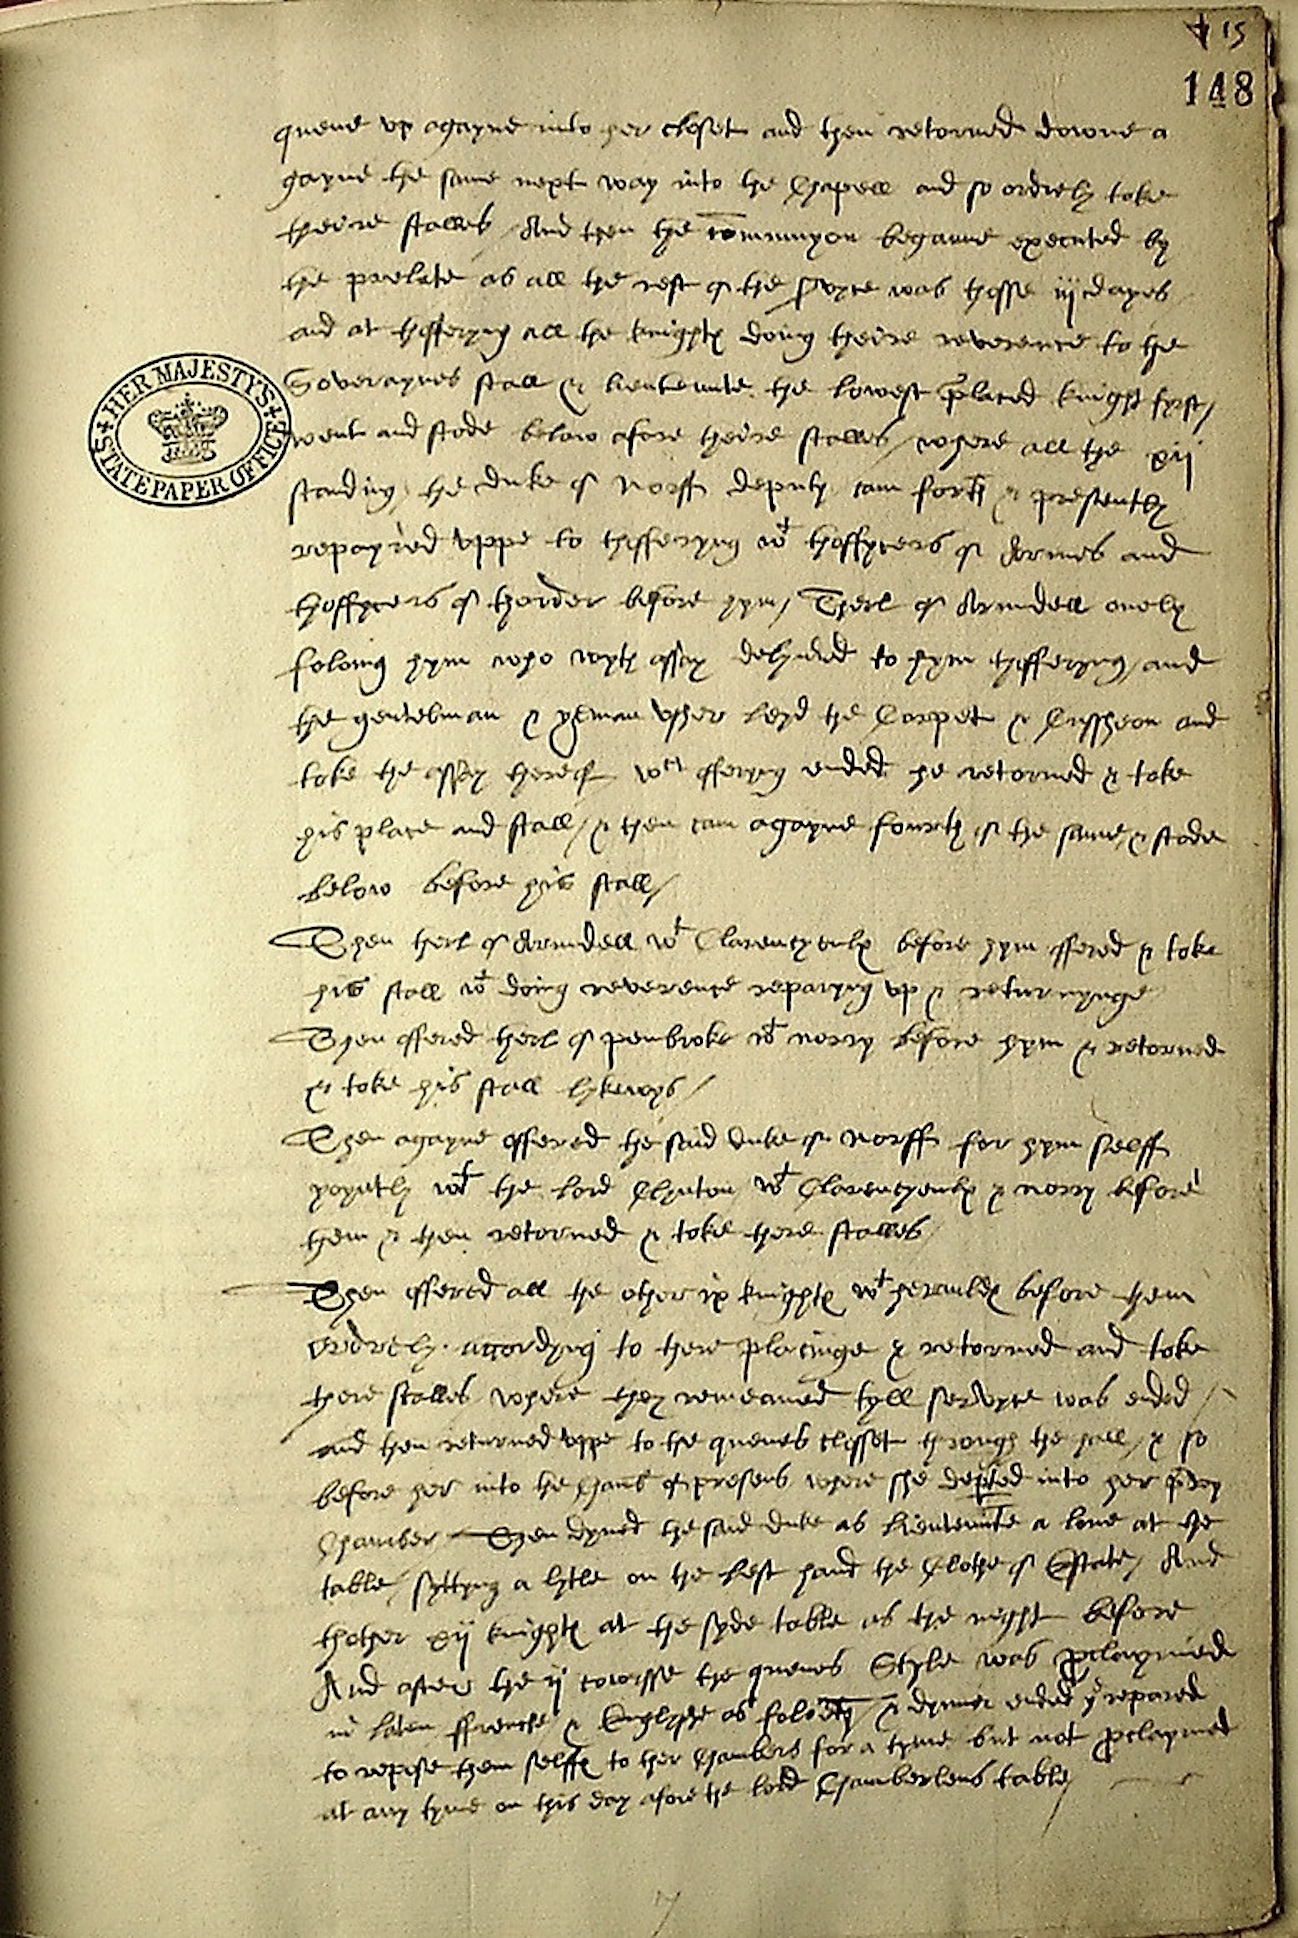 15
148
quene vp agayne into her closet and then retorned downe a
gayne the same next way into the Chapell and so ordrely toke
theire stalles / And then the comunyon beganne executed by
the prelate as all the rest of the s'vyce was thosse iij dayes /
and at thofferyng all the knightes doing theire reverence to the
Soveraynes stall & lieutennte the lowest placed knight fyrst /
went and stode below afore theire stalles / where all the xij
standing / the duke of Norff deputy cam forth & presently
repayred vppe to thofferyng wt thoffycers of Armes and
thoffycers of thorder before hym / Therl of Arundell onely
folowing hym who wyth assay delyu'ed to hym thofferyng / and
the gentelman & yeman vsher leyd the Carpet & Cussheon and
toke the assay thereof wch offeryng ended he retorned & toke
his place and stall / & then cam agayne fourth of the same & stode
below before his stall /
Then therl of Arundell wt Clarencyeulx before hym offered & toke
his stall wt doing reverence repairyng vp & returnynge
Then offered therl of penbroke wt norry before hym & retorned
& toke his stall lykewys /
Then agayne offered the said duke of Norff for hym selff
yoyntly wt the lord Clynton wt Clarencyeulx & norry before
them & then retorned & toke there stalles /
Then offered all the other ix knightes wt herauldes before them
ordrely accordyng to there placinge & retorned and toke
there stalles where they remeaned tyll servyce was ended /
and then returned vppe to the quenes closset through the hall / & so
before her into the Chamb' of presens where she dep'ted into her p'vey
Chamber Then dyned the said duke as lieutennte a lone at the
table / syttyng a lytle on the left hand the Clothe of Estate / And
thother xij knightes at the syde table as the night before
And after the ij cowrsse the quenes Style was p'claymed
in laten ffrenche & Englyshe as foloeth & dynner ended yei repared
to repose them selffes to ther Chambers for a tyme but not p'claymed
at any tyme on this day afore the lord Chamberlens table /
HER MAJESTY'S
STATE PAPER OFFICE